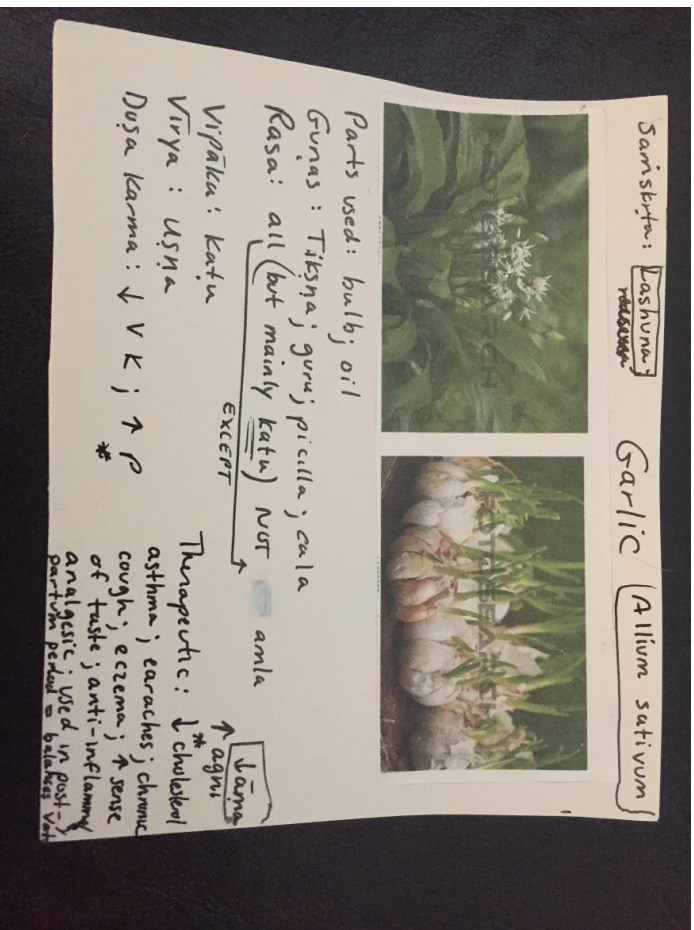 Saṁskṛta: Lashuna;
Garlic (Allium sativum)
FOTOSEARCH
FOTOSEARCH
Parts used: bulb; oil
Guṇas: Tīkṣṇa; guru; picilla; cala
Rasa: all (but mainly katu) NOT amla
EXCEPT
Vipāka: katu
Vīrya: Uṣṇa
Doṣa karma: ↓ V K; ↑ P
*
↓ āma
↑ agni
*
Therapeutic: ↓ cholesterol
asthma; earaches; chronic
cough; eczema; ↑ sense
of taste; anti-inflammy
analgesic; used in post-
partum period = balances vat